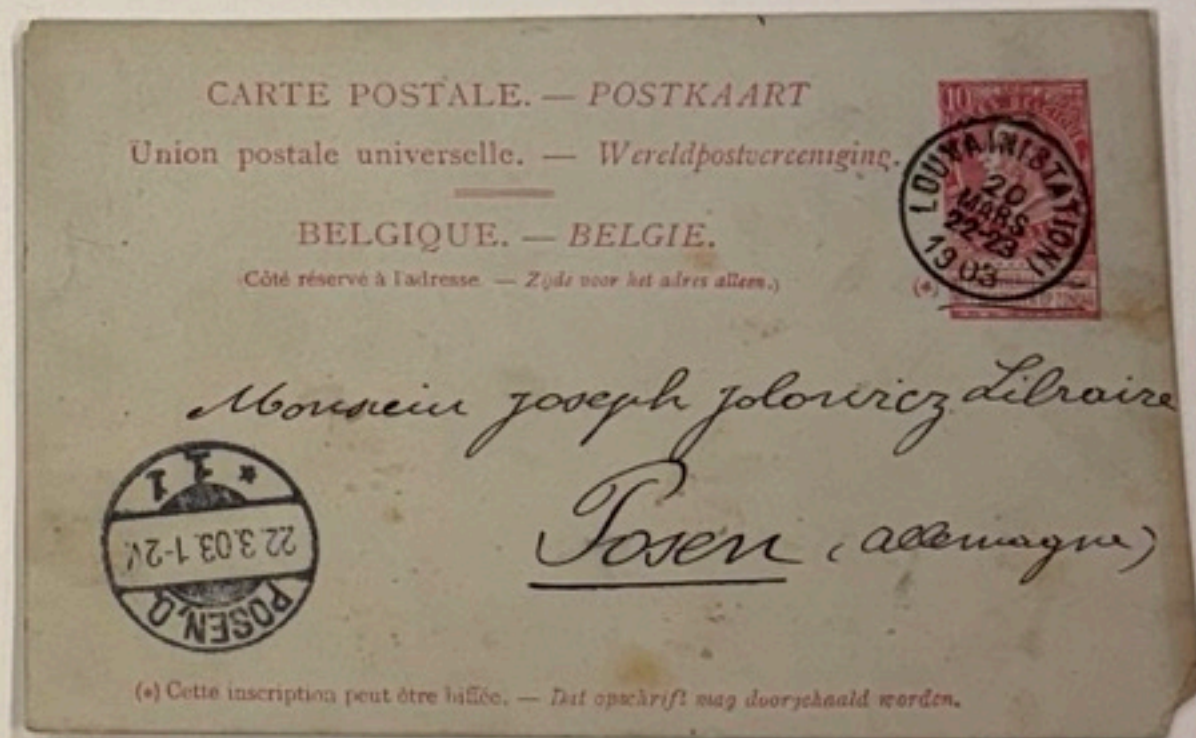 CARTE POSTALE. — POSTKAART
Union postale universelle. — Wereldpostvereeniging.
BELGIQUE. — BELGIE.
(Côté réservé à l'adresse. — Zijde voor het adres alleen.)
10
LOUVAIN (STATION)
20
MARS
22-23
1903
(*)
Monsieur Joseph Jolowicz Libraire
Posen (Allemagne)
POSEN, O.
22.3.03.1-2V.
* 1 1
(*) Cette inscription peut être biffée. — Dit opschrift mag doorgehaald worden.